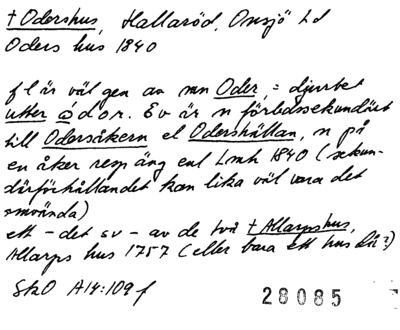 † Odershus, Hallaröd, Onsjö hd
Oders hus 1840
fl är väl gen av mn Oder, = djurbet
utter odor. Ev är n förledssekundärt
till Odersåkern el Odershällan, n på
en åker resp äng enl Lmh 1840 (sekun-
därförhållandet kan lika väl vara det
omvända)
ett - det sv - av de två † Allarpshus,
Allarps hus 1757 (eller bara ett hus där?)
SkO A14:109 f
28085